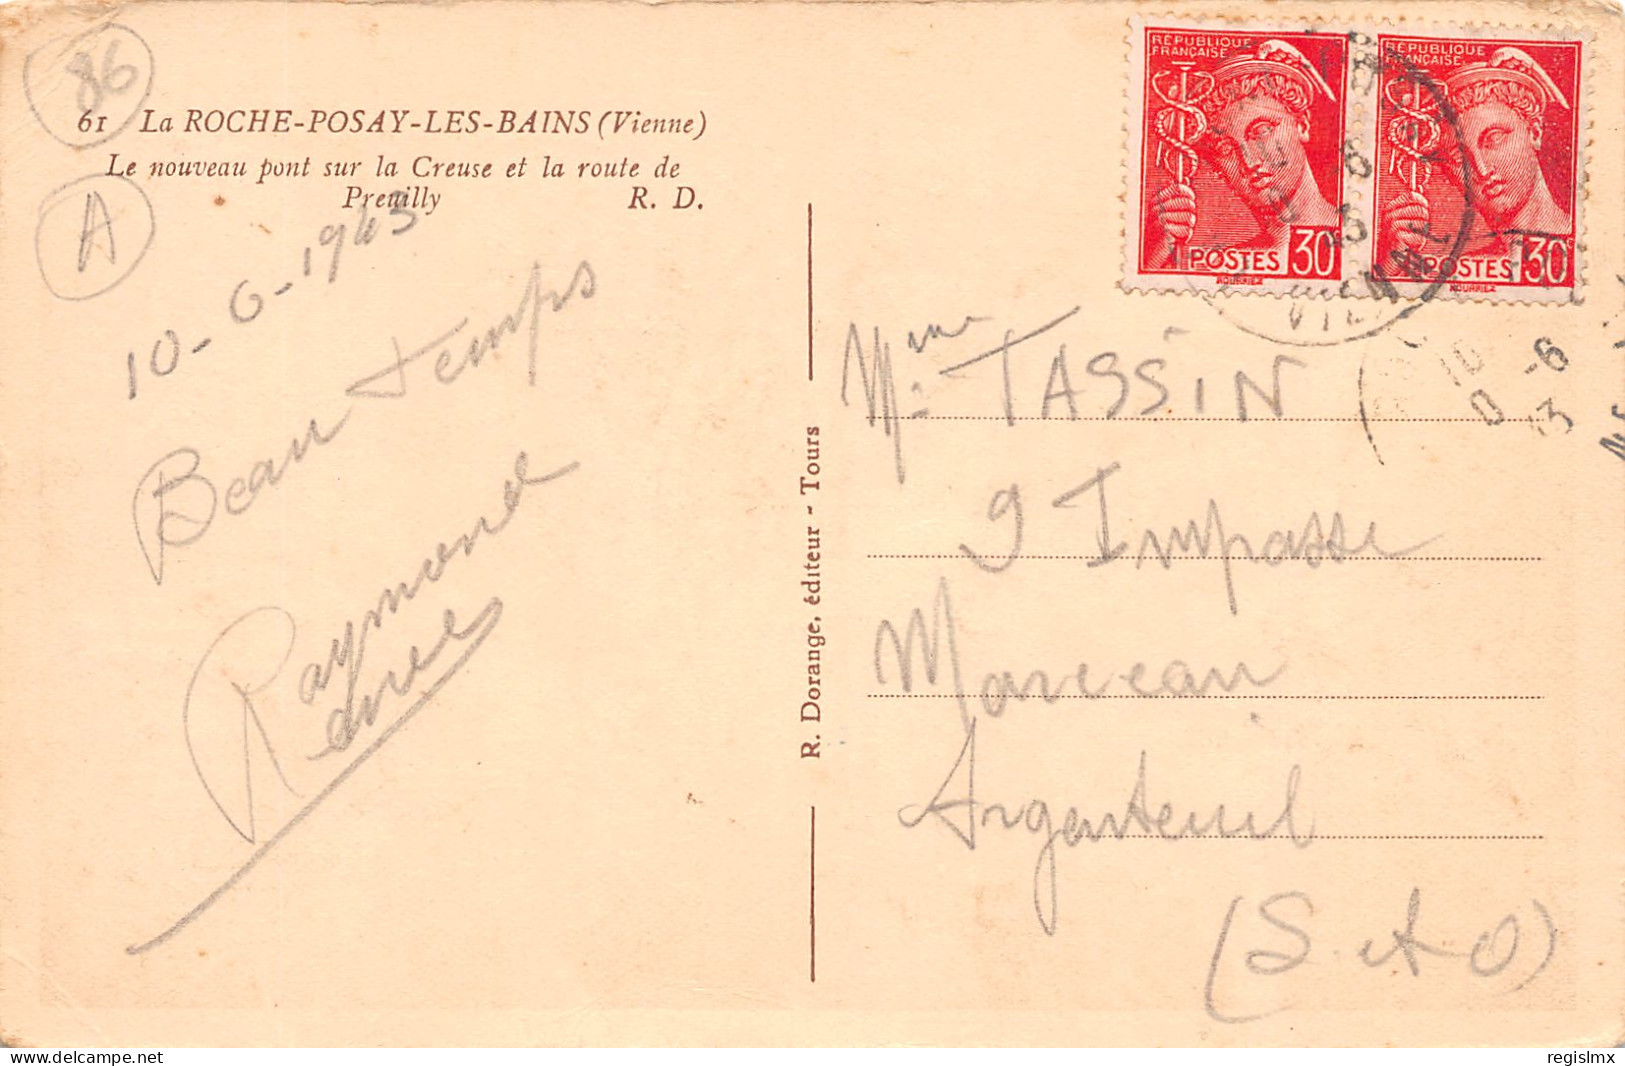 86
61 La ROCHE-POSAY-LES-BAINS (Vienne)
Le nouveau pont sur la Creuse et la route de
Preuilly R. D.
A
10-6-1943
Beau temps
Raymond
R. Dorange, éditeur - Tours
RÉPUBLIQUE
FRANÇAISE
POSTES 30
HOURRIEZ
RÉPUBLIQUE
FRANÇAISE
POSTES 30c
HOURRIEZ
10
-6
Mme TASSIN
9 Impasse
Marceau
Argenteuil
(S. et O)
regislmx